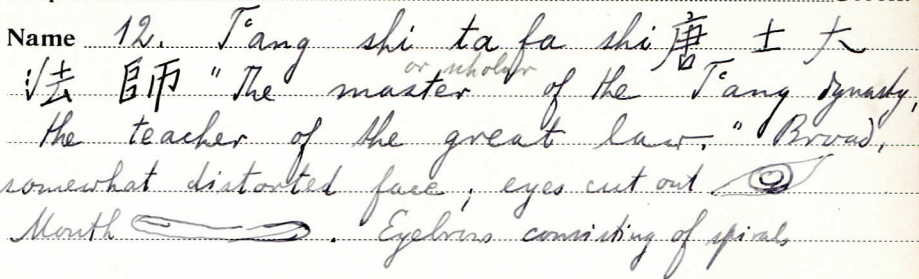 Name 12. T'ang shi ta fa shi 唐 士 大
法 師 "The master or scholar of the T'ang dynasty,
the teacher of the great law." Broad,
somewhat distorted face; eyes cut out
Mouth . Eyebrows consisting of spirals